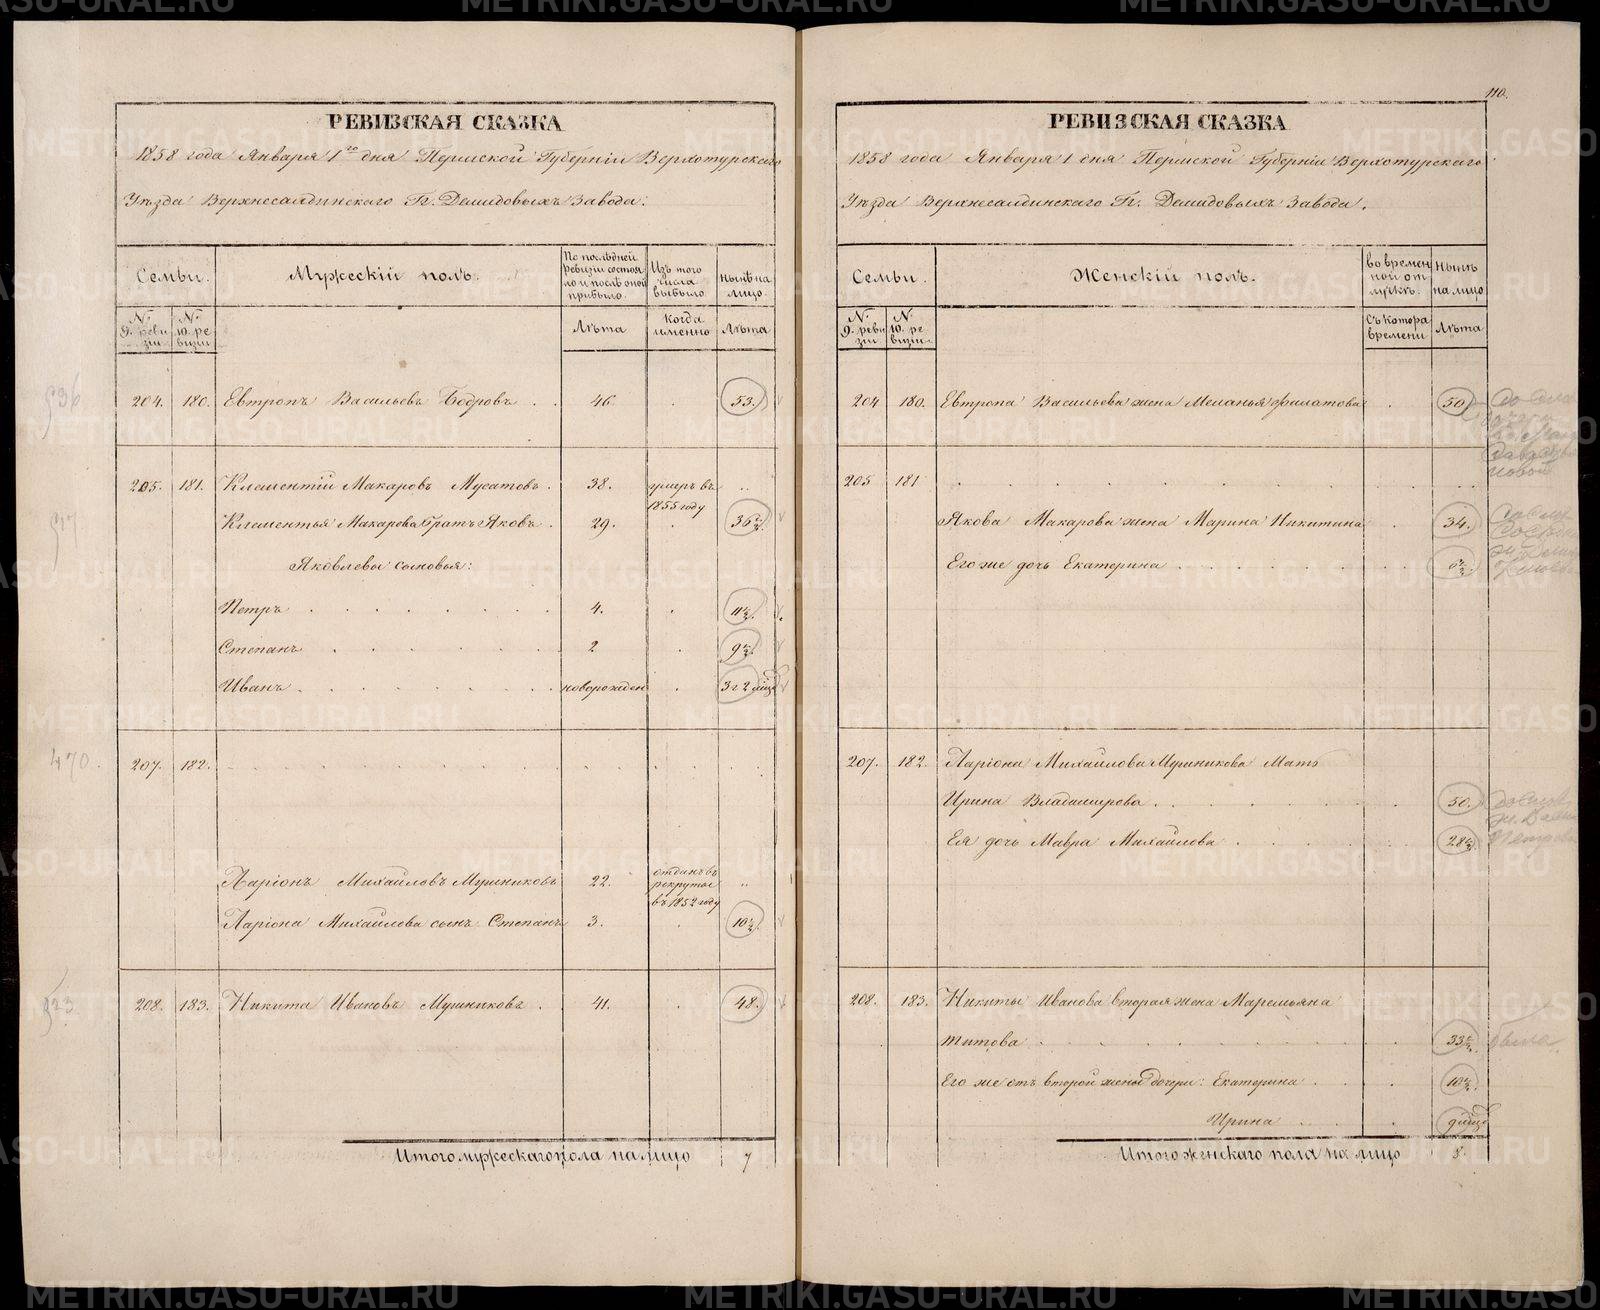 РЕВИЗСКАЯ СКАЗКА
1858 года Января 1го дня Пермской Губерніи Верхотурскаго
Уѣзда Верхнесалдинскаго Гг. Демидовыхъ Завода:
Семьи.
Мужескій полъ.
По послѣдней ревизіи состояло и послѣ оной прибыло.
Изъ того числа выбыло
нынѣ на лицо.
№ 9. ревизіи
№ 10. ревизіи
Лѣта
Когда именно
Лѣта
204. 180. Евтропъ Васильевъ Бодровъ . . 46. . 53.
205. 181. Клементій Макаровъ Мусатовъ . 38. умеръ въ 1855 году ..
Клементья Макарова братъ Яковъ . 29. . 36½
Яковлевы сыновья:
Петръ . . . . . . . 4. . 11½.
Степанъ . . . . . . 2 . 9½.
Иванъ . . . . . . . новорожден . 3 г 2 мѣс
470.
207. 182. . . . . . . . . . . . . .
Ларіонъ Михайловъ Мушниковъ 22. отданъ въ рекруты въ 1852 году ..
Ларіона Михайлова сынъ Степанъ 3. . 10½.
208. 183. Никита Ивановъ Мушниковъ . 41. . 48.
Итого мужескаго пола на лицо 7
110.
РЕВИЗСКАЯ СКАЗКА
1858 года Января 1 дня Пермской Губерніи Верхотурскаго
Уѣзда Верхнесалдинскаго Гг. Демидовыхъ Завода.
Семьи.
Женскій полъ.
во временной отлучкѣ.
Нынѣ на лицо
№ 9. ревизіи
№ 10. ревизіи
Съ котора времени
Лѣта
204 180. Евтропа Васильева жена Меланья Филатова . 50
205 181 . . . . . . . . . . ..
Якова Макарова жена Марина Никитина . 34.
Его же дочь Екатерина . . . . . . .
207. 182. Ларіона Михайлова Мушникова Мать
Ирина Владимирова . . . . . . . 50.
Ея дочь Мавра Михайлова . . . . . 28½.
208. 183. Никиты Иванова вторая жена Маремьяна
Титова . . . . . . . . . 33½.
Его же отъ второй жены дочери: Екатерина . . . 10½.
Ирина . . . . 9 мѣсц
Итого женскаго пола на лицо 8.
METRIKI.GASO-URAL.RU